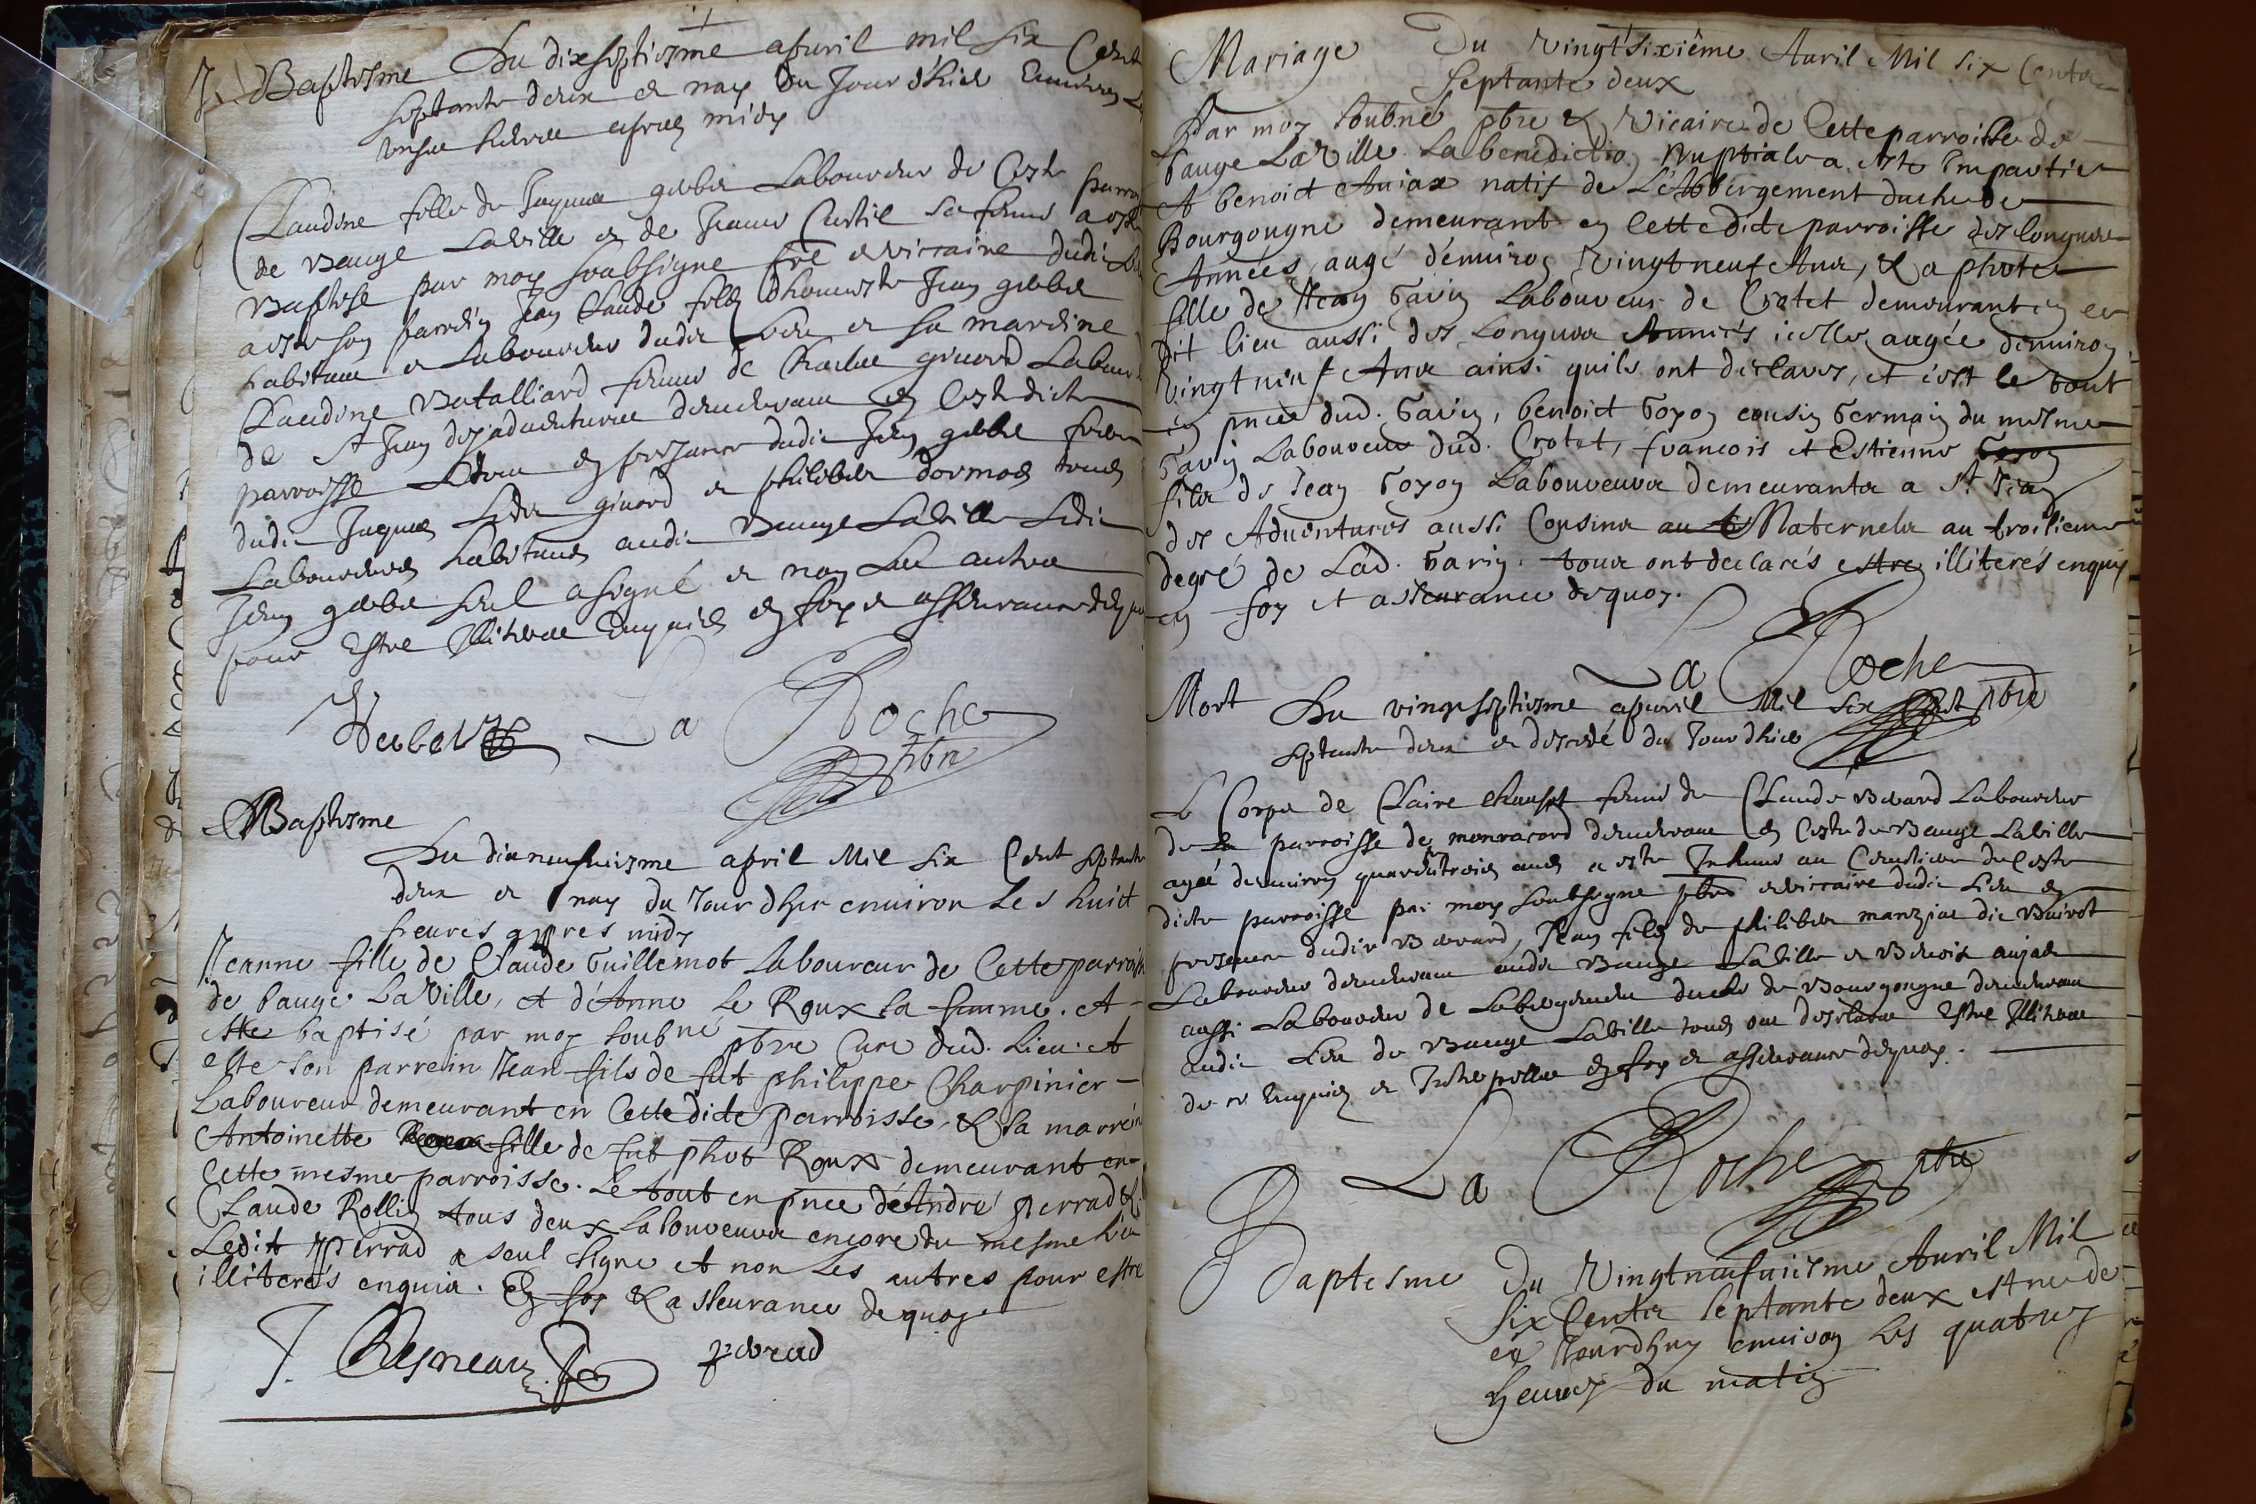 Baptesme Du dixseptiesme apuril mil six Cent
septante deux et nay du Jour d'hier Enuiron
unse heures apres midy
Claudine fille de Jaques gebel Laboureur de Ceste parro
de Bauge Laville et de Jeanne Curtil sa feme a este
Baptise par moy soubsigne pbre et viccaire dudit Lieu
a este son parrin Jean Claude filz d'honneste Jean gebel
habitant et Laboureur dudit Lieu et sa mardine
Claudine Batalliard feme de Charles girord Labour
de St Jean des aduentures demeurant en Ceste dicte
parroisse Le tout en presance dudit Jean gebel frere
dudit Jaques Ledit girord et philibert dormod tous
Laboureurs habitans audit Bauge Laville Ledit
Jean gebel seul a signé et non Les autres
pour Estre Illiteres Enquis en foy et asseurance dequoy
La Roche
pbre
Baptesme
Du dixneufuiesme april Mil six Cent septante
deux et nay du Jour d'hyer enuiron Les huict
heures apres midy
Jeanne fille de Claude Guillemot Laboureur de Cette parroisse
de bauge LaVille, et d'Anne Le Roux sa femme. A
este baptisé par moy soubné pbre Curé dud. Lieu. et
este son parrein Jean fils de fut philippe Charpinier
Laboureur demeurant en Cette dicte parroisse, & sa marrein
Antoinette fille de fut phot Roux demeurant en
Cette mesme parroisse. Le tout en pnce d'Andre perrad &
Claude Rollin tous deux Laboureurs encore du mesme Lieu
Ledit Perrad a seul signe et non Les autres pour estre
illiterés enquis. En foy & asseurance de quoy
J. Chesneau perrad
Mariage Du Vingt sixiême Auril Mil six Cents
septante deux
Par moy soubné pbre & Vicaire de Cette parroisse de
bauge LaVille La benediction Nuptiale a este Impartie
A benoict Aujax natif de L'Abbergement duche de
Bourgougne demeurant en Cette dicte parroisse des longues
Années, augé d'enuiron Vingt neuf Ans, & a phote
fille de Jean Gavin Laboureur de Crotet demeurant en ce
dit lieu aussi des Longues Années icelle augée denuiron
Vingt neuf Ans ainsi quils ont declares, et c'est le tout
en pnce dud. Gavin, benoict Goyon cousin Germain du mesme
Gavin Laboureur dud. Crotet, francois et Estienne Goyon
fils de Jean Goyon Laboureurs demeurants a St Jean
des Aduentures aussi Cousins Maternels au troisieme
degré de Lad. Gavin. tous ont declarés estre illiterés enquis
en foy et asseurance dequoy.
La Roche
pbre
Mort Du vingt septiesme apuril Mil six Cent
septante deux et decedé du Jour dhier
Le Corps de Claire feme de Claude Bevard Laboureur
de La parroisse de monracord demeurant en Ceste de Bauge Laville
agée denuiron quarentetrois ans a este Inhume au Cemetiere de Ceste
dicte parroisse par moy soubsigne pbre et viccaire dudit Lieu en
presence dudit Bevard, Jean filz de philibert manziat dit Buirot
Laboureur demeurant audit Bauge Laville et Benoit aujas
aussi Laboureur de Labergement duche de Bourgongne demeurant
audit Lieu de Bauge Laville tous ont desclare Estre Illiteres
de ce Enquis et Interpelles en foy et asseurance dequoy.
La Roche pbre
Baptesme Du Vingtneufuiesme Auril Mil
six Cents septante deux est née de
ce Jourdhuy enuiron Les quatres
heures du matin